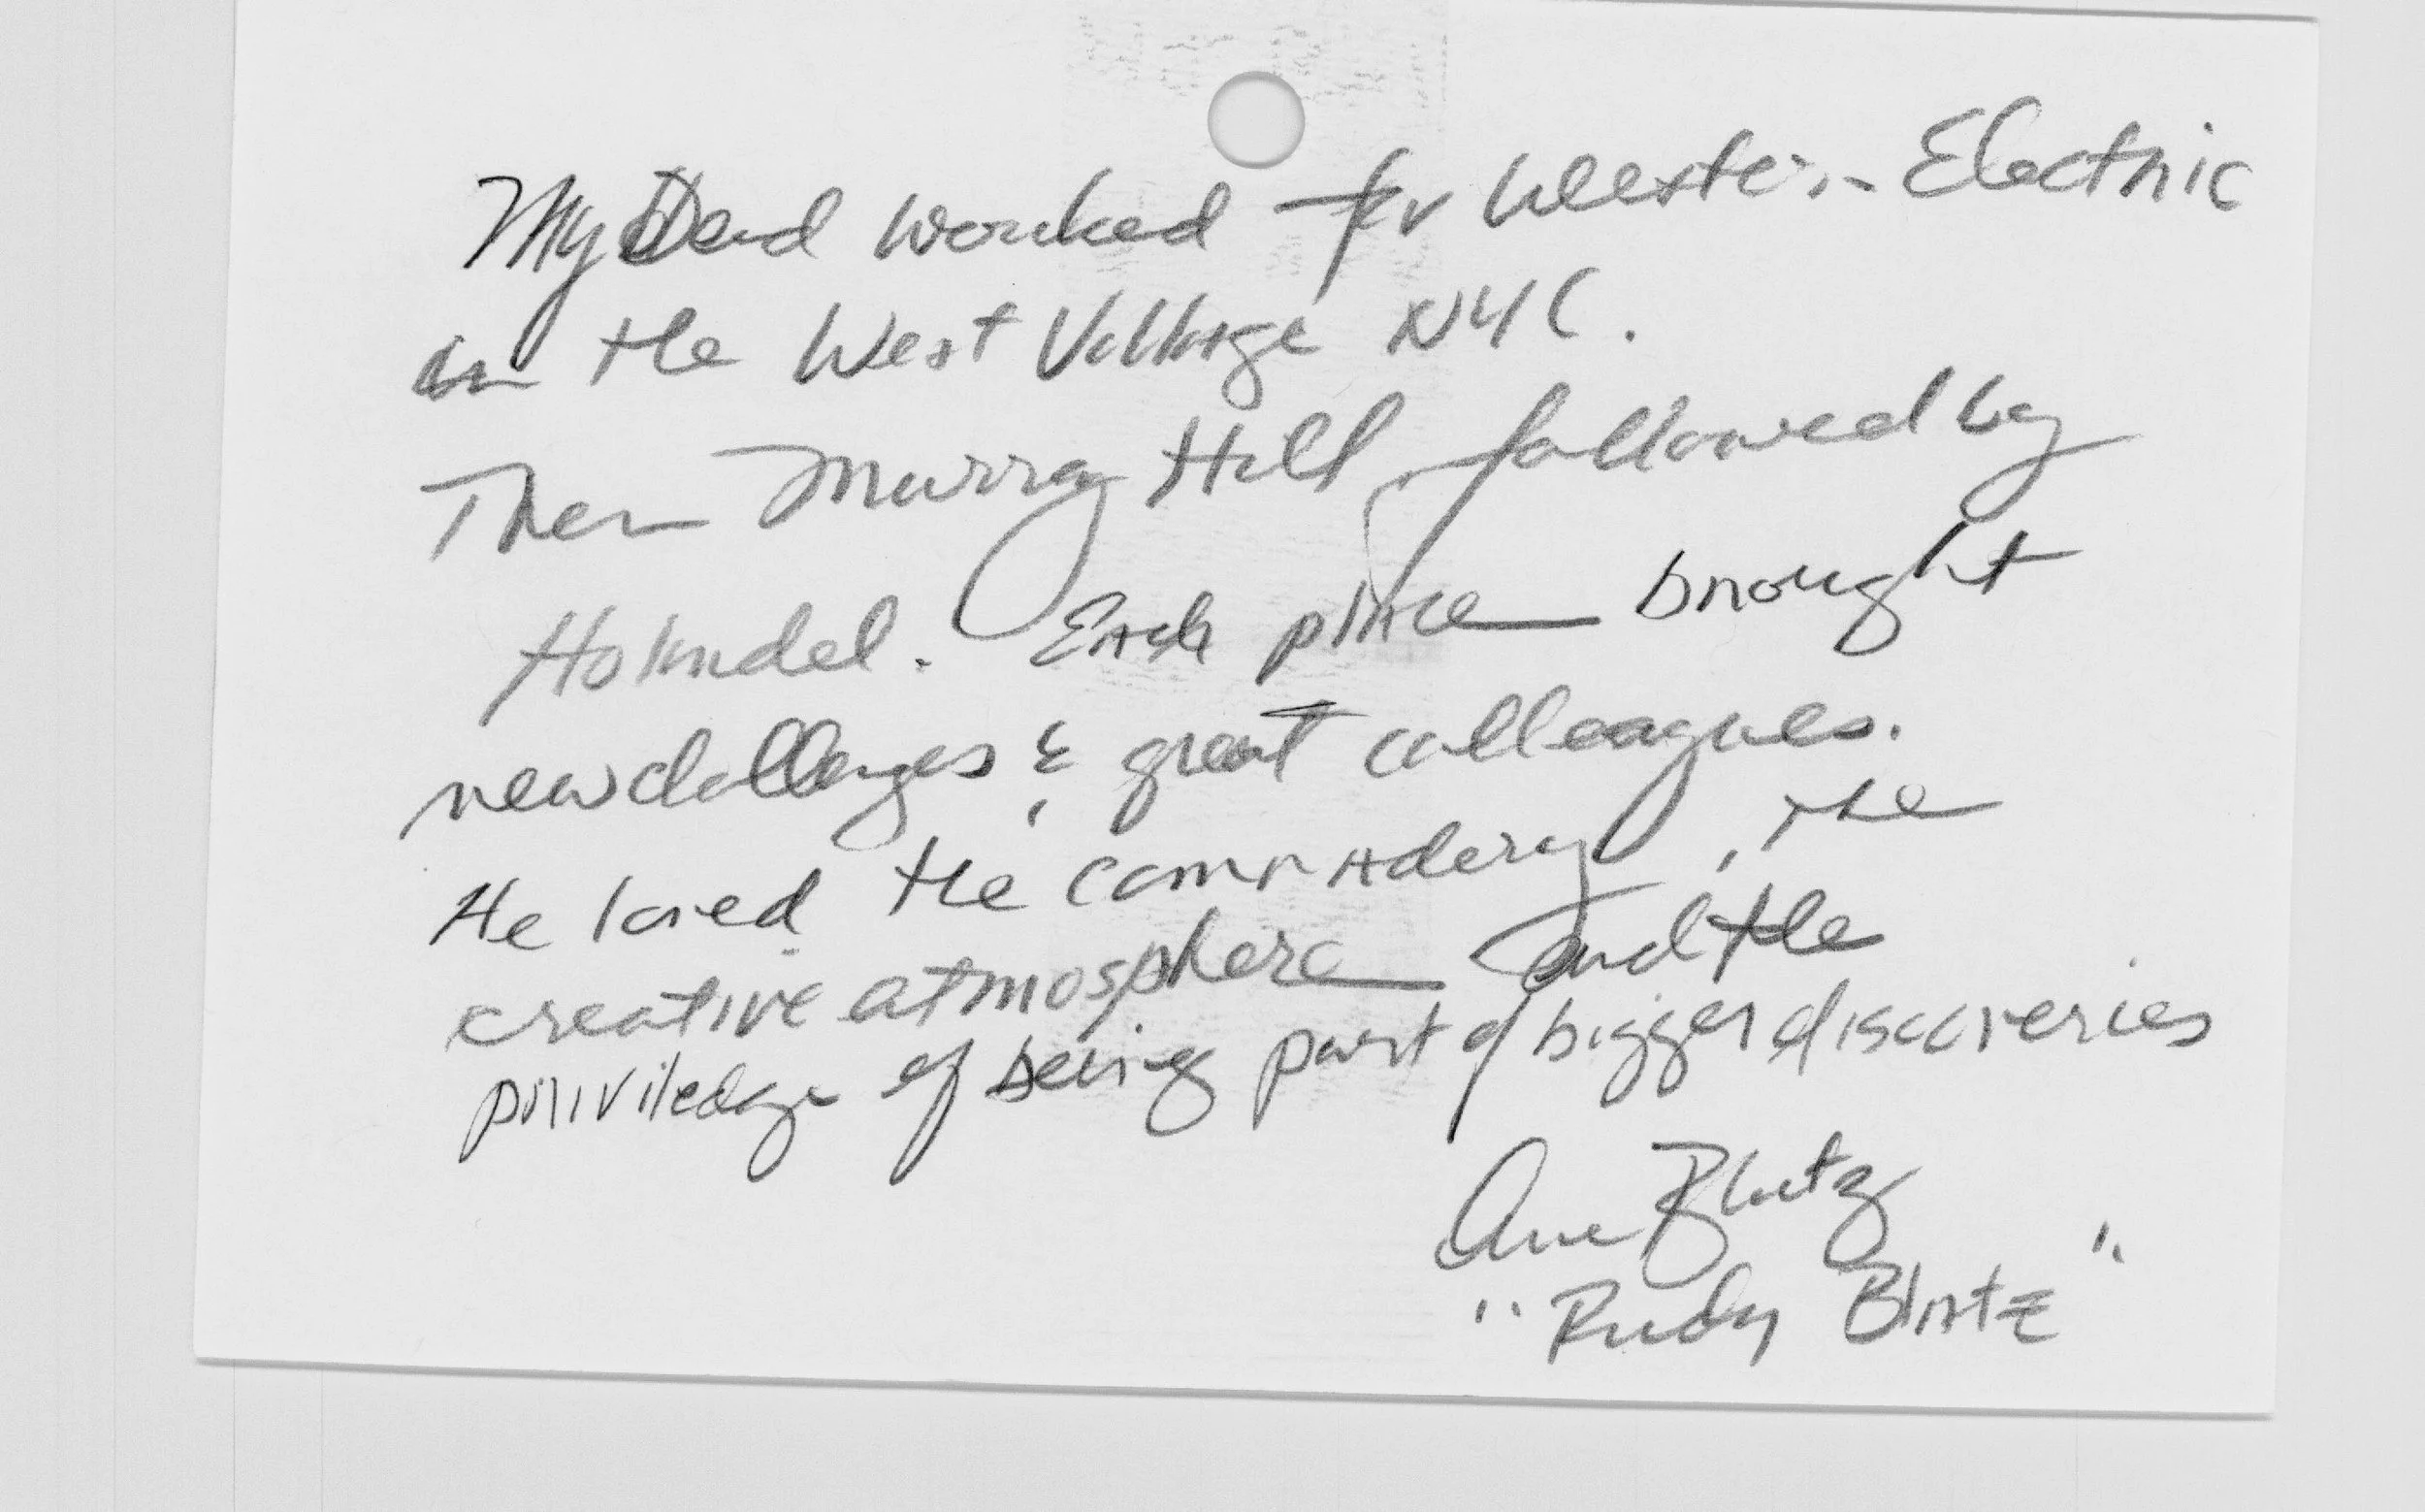 My Dad worked for Western Electric
in the West Village NYC.
Then Murray Hill, followed by
Holmdel. Each place brought
new challenges & great colleagues.
He loved the comradery, the
creative atmosphere and the
priviledge of being part of bigger discoveries
"Rudy